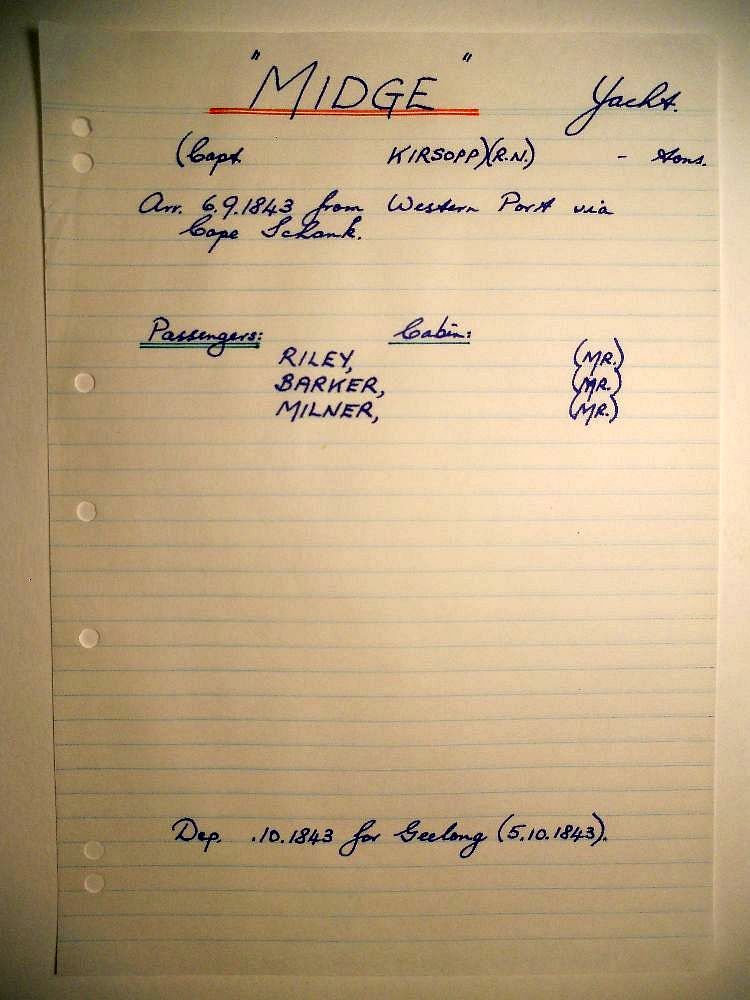 "MIDGE" Yacht.
(Capt. KIRSOPP)(R.N.) - tons.
Arr. 6.9.1843 from Western Port via
Cape Schank.
Passengers: Cabin:
RILEY, (MR.)
BARKER, (MR.)
MILNER, (MR.)
Dep. .10.1843 for Geelong (5.10.1843).